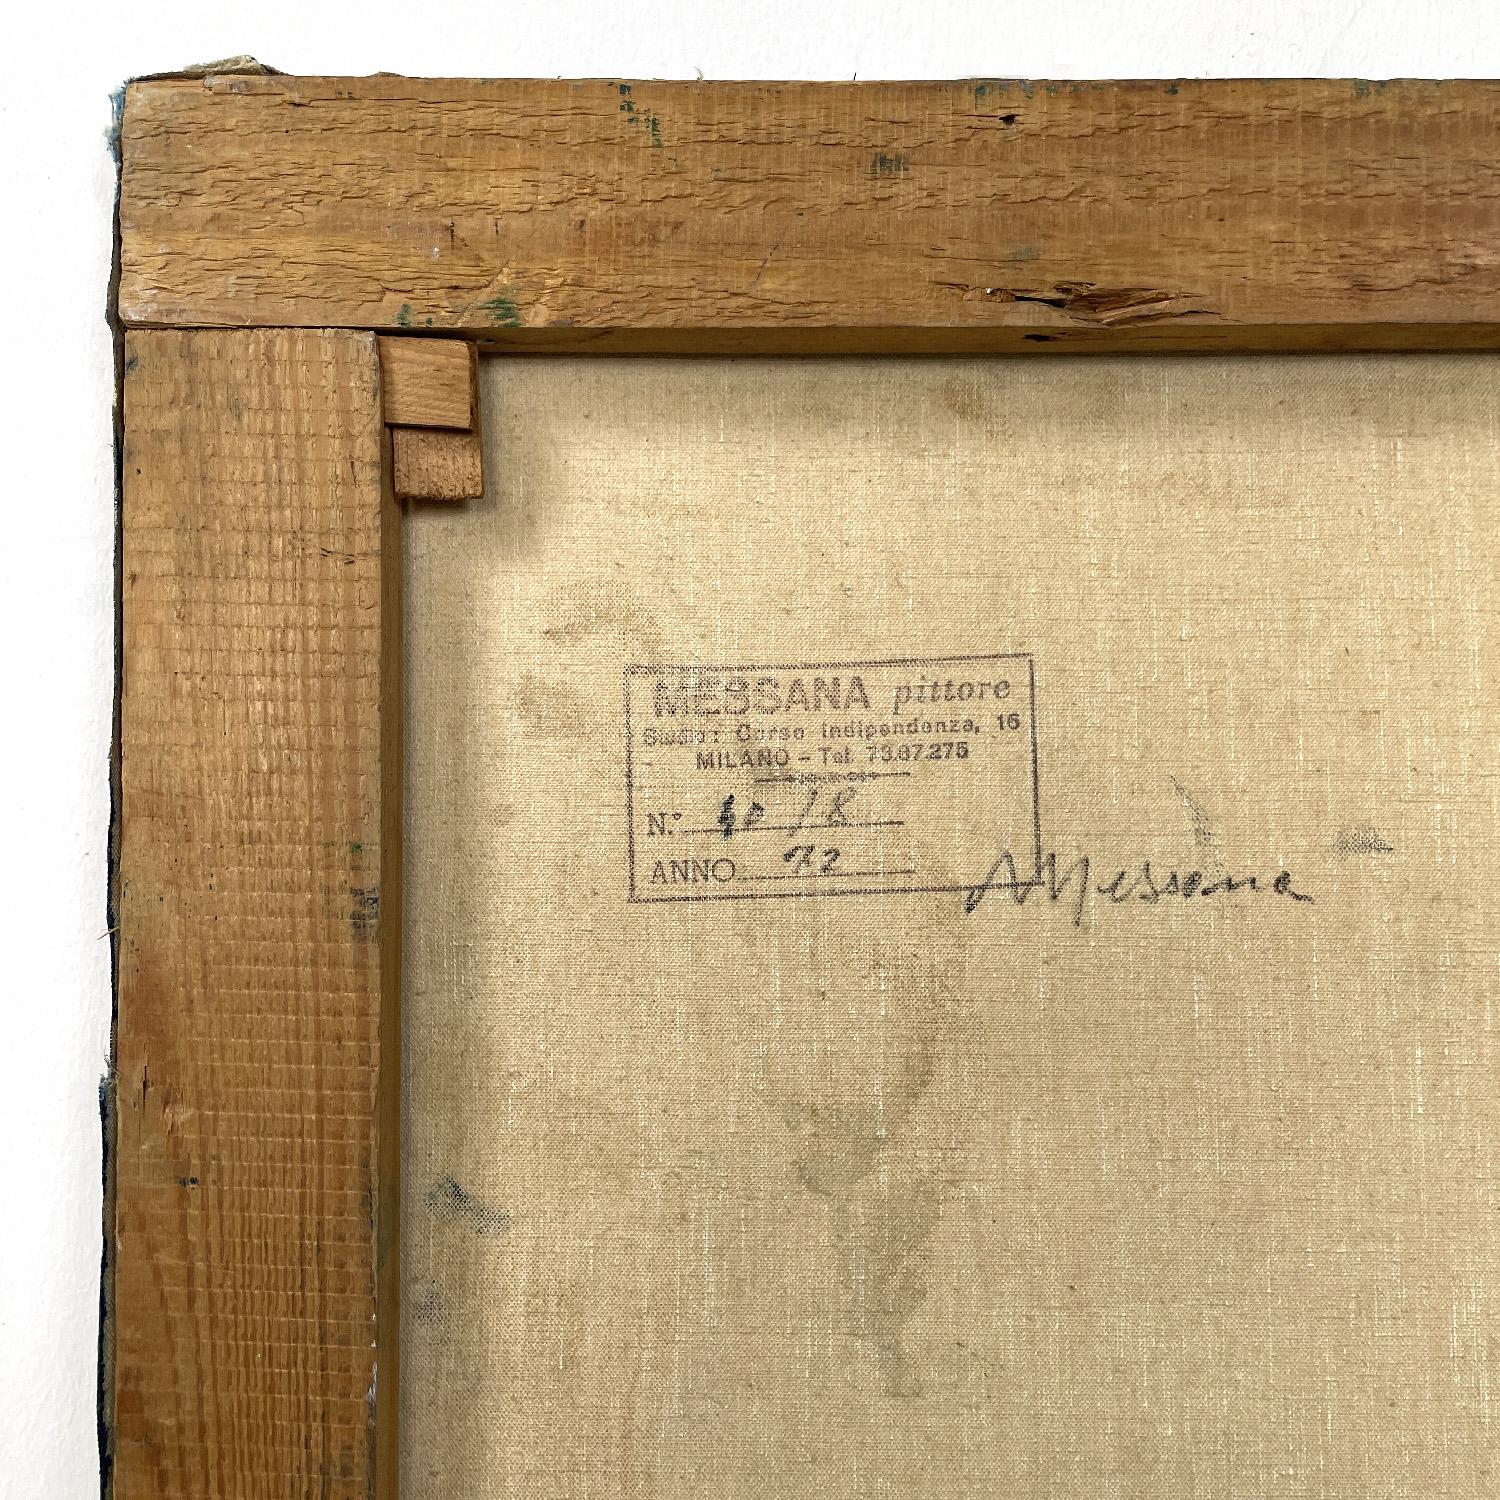 MESSANA pittore
Studio: Corso Indipendenza, 16
MILANO - Tel. 73.87.275
N.° 10/8
ANNO 72
A Messana